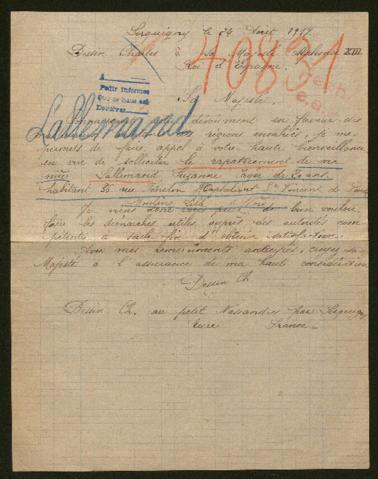 Serquigny le 24 Août 1917
Dessin Charles à Sa Majesté Alphonse XIII
Roi d'Espagne.
40831
A
Pedir informes
Sa Majesté,
Lallemand
dévouement en faveur des
régions envahies, je me
permets de faire appel à votre haute bienveillance
en vue de solliciter le rapatriement de ma
nièce Lallemand Suzanne âgée de
habitant 35 rue St Vincent de
Moulins Lille
Je viens donc vous prier de bien vouloir
faire les démarches utiles auprès des autorités com
pétentes à cette fin d'obtenir satisfaction.
Avec mes remerciements anticipés, croyez Sa
Majesté à l'assurance de ma haute considération
Dessin Ch
Dessin Ch. au petit Nassandres par Serquigny
Eure France